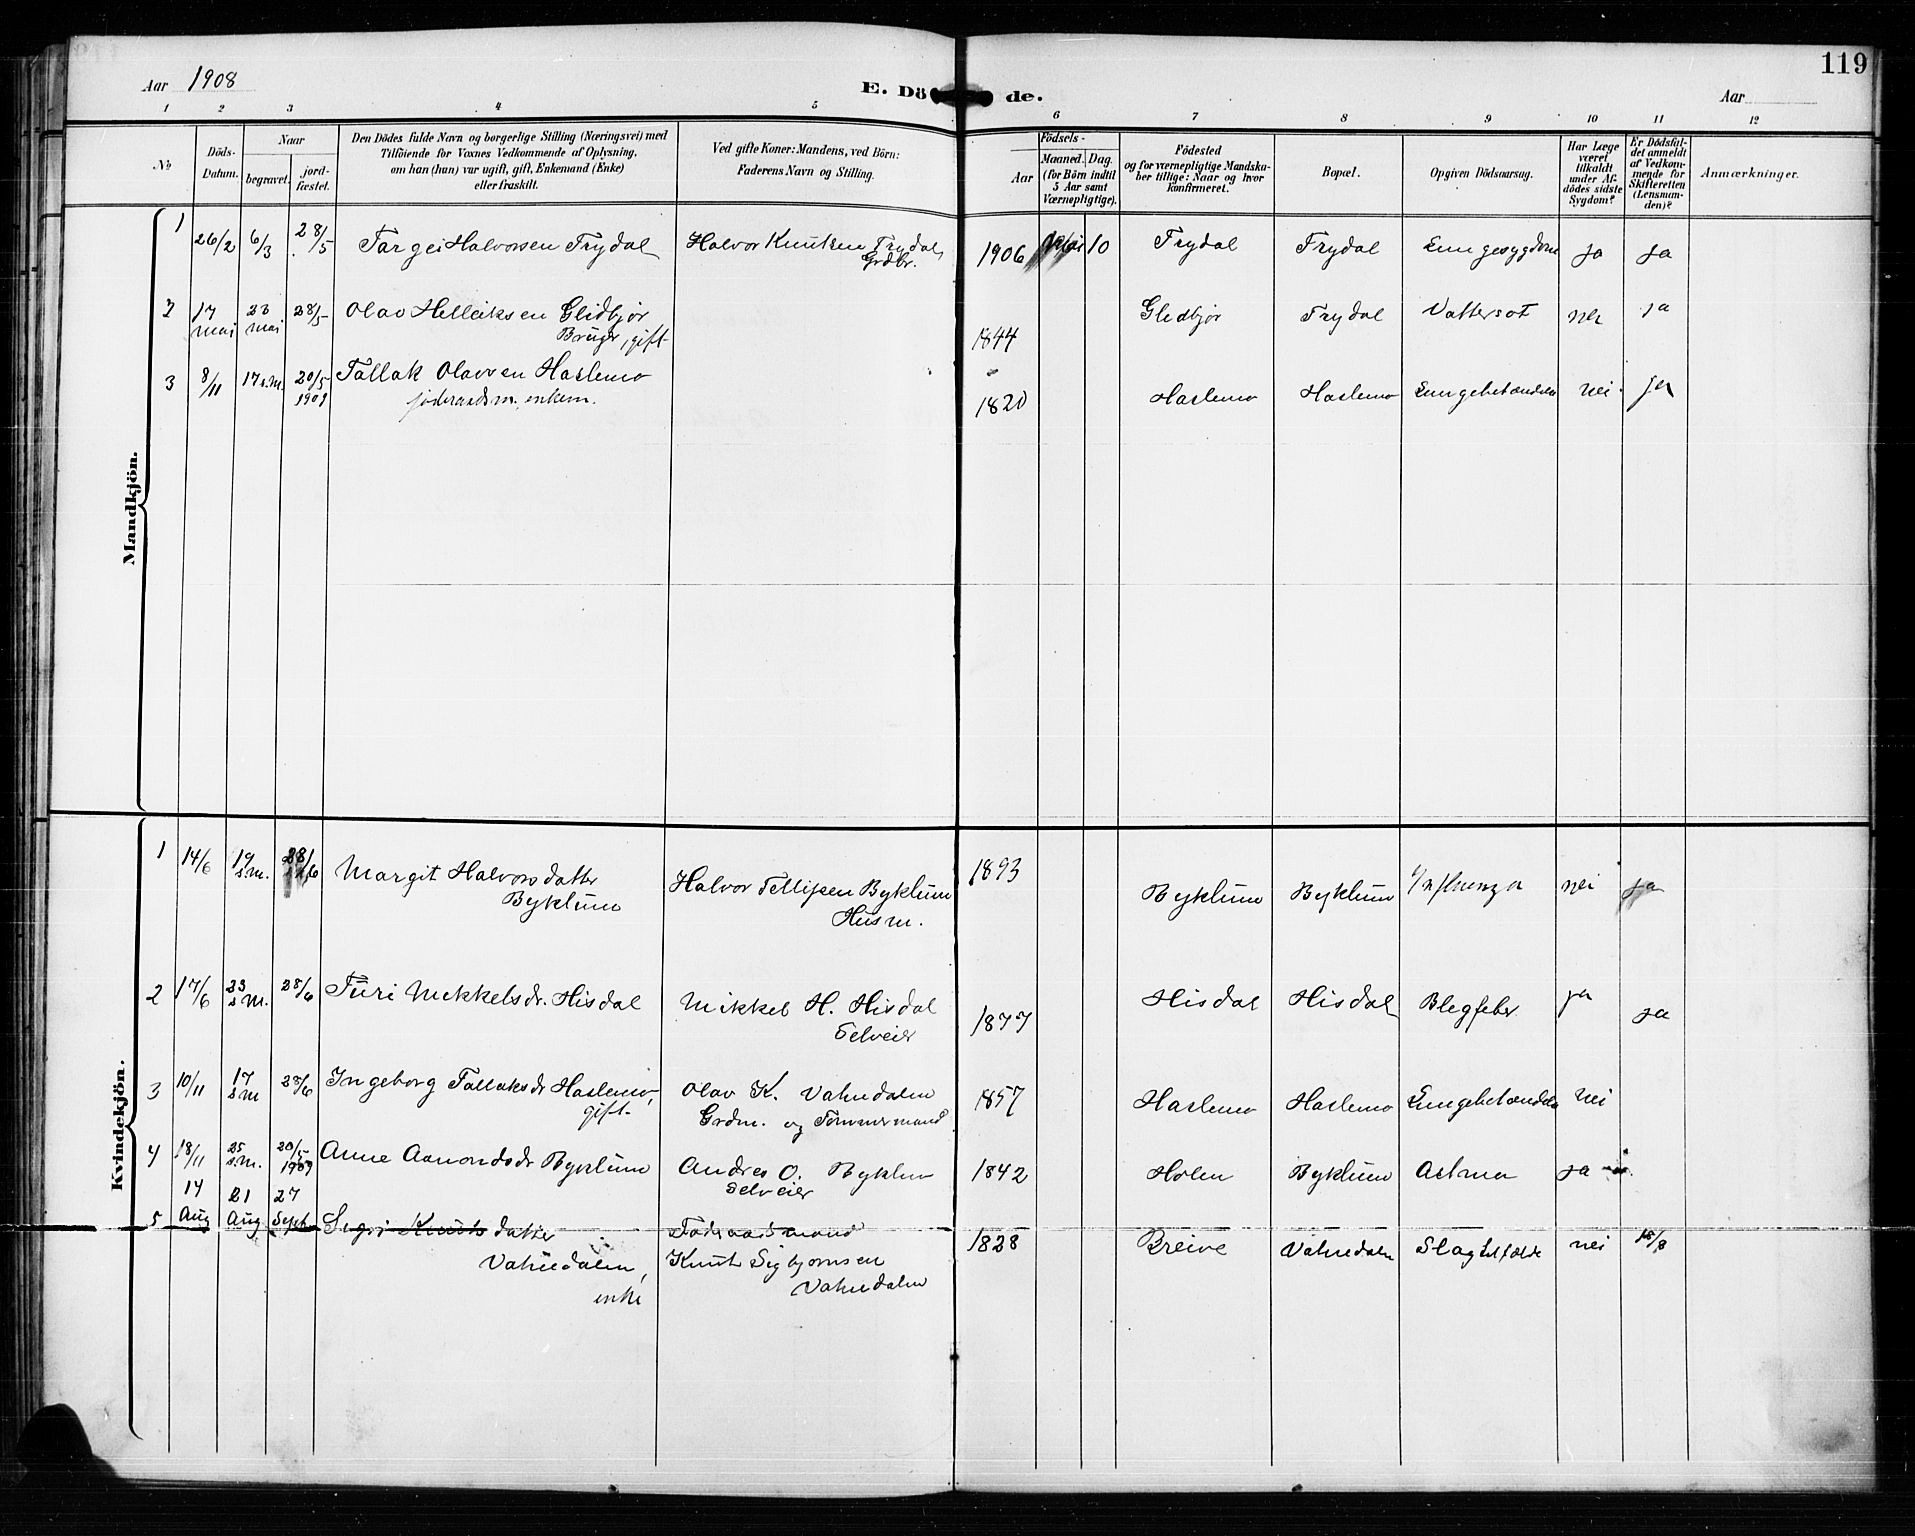 119
Aar 1908
E. Döde.
Aar
1 2 3 4 5 6 7 8 9 10 11 12
No
Döds-Datum.
Naar
begravet.
jordfæstet.
Den Dödes fulde Navn og borgerlige Stilling (Næringsvei) med
Tilföiende for Voxnes Vedkommende af Oplysning,
om han (hun) var ugift, gift, Enkemand (Enke)
eller fraskilt.
Ved gifte Koner: Mandens, ved Börn:
Faderens Navn og Stilling.
Födsels-
Aar
Maaned. Dag.
(for Börn indtil
5 Aar samt
Værnepligtige).
Födested
og for værnepligtige Mandska-
ber tillige: Naar og hvor
konfirmeret.
Bopæl.
Opgiven Dödsaarsag.
Har Læge
været
tilkaldt
under Af-
dödes sidste
Sygdom?
Er Dödsfal-
det anmeldt
af Vedkom-
mende for
Skifteretten
(Lensman-
den)?
Anmærkninger.
Mandkjön.
1 26/2 6/3 28/5 Targei Halvorsen Trydal Halvor Knutsen Trydal Grdbr. 1906 10 Trydal Trydal Lungesygdom ja ja
2 17 mai 23 mai 28/5 Olav Helleiksen Glidbjør Bruger, gift 1844 Glidbjør Trydal Vattersot nei ja
3 8/11 17 s.m. 20/5 1909 Tallak Olavsen Haslemo enkem. 1820 Haslemo Haslemo Lungebetændelse nei ja
Kvindekjön.
1 14/6 19 s.m. 28/6 Margit Halvorsdatter Byklum Halvor Tellefsen Byklum Husm. 1893 Byklum Byklum Influenza nei ja
2 17/6 23 s.m. 28/6 Turi Mikkelsdr. Hisdal Mikkel H. Hisdal Selveier 1877 Hisdal Hisdal Blegfeber ja ja
3 10/11 17 s.m 28/6 Ingeborg Tallaksdr Haslemo, gift Olav K. Vatnedalen Grdm. og Tømmermand 1857 Haslemo Haslemo Lungebetændelse nei
4 18/11 25 s.m. 20/5 1909 Anne Aanondsdr Byklum Andres O. Byklum Selveier 1842 Holen Byklum Astma ja
5 14 Aug 21 Aug 27 Sept Sigri Knutsdatter Vatnedalen, enke Føderaadsmand Knut Sigbjørnsen Vatnedalen 1828 Breive Vatnedalen Slagtilfælde nei 18/8